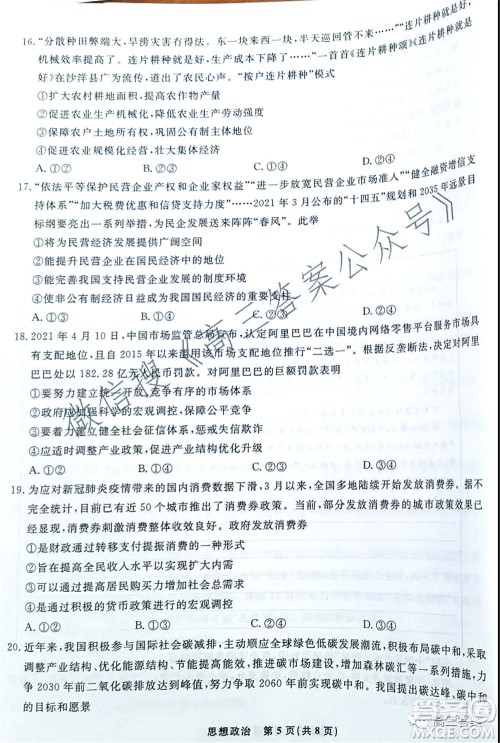 16.“分散种田弊端大，旱涝灾害有得法。东一块来西一块，半天巡回管不来……”“连片耕种就是好，
机械效率提高了。连片耕种就是好，生产成本下降了……”一首首《连片耕种颂》《连片耕种就是
好》在沙洋县广为流传，道出了农民心声。“按户连片耕种”模式
①扩大农村耕地面积，提高农作物产量
②促进农业生产机械化，降低农业生产劳动强度
③保障农户土地所有权，实现共同富裕
④促进农业规模化经营，壮大集体经济
A.①② B.①③ C.②④ D.③④
17.“依法平等保护民营企业产权和企业家权益”“进一步放宽民营企业市场准入”“健全融资增信支
持体系”“加大税费优惠和信贷支持力度”……2021年3月公布的“十四五”规划和2035年远景目
标纲要亮出一系列举措，为民企发展送来阵阵“春风”。此举
①将为民营经济发展提供广阔空间
②能提升民营企业在国民经济中的地位
③能完善我国支持民营企业发展的制度环境
④使民营经济日益成为我国国民经济的重要支柱
A.①③ B.①④ C.②③ D.②④
18.2021年4月10日，中国市场监管总局宣布，认定阿里巴巴在中国境内网络零售平台服务市场具
有支配地位，且自2015年以来滥用该市场支配地位推行“二选一”。根据反垄断法，决定对阿里巴
巴处以182.28亿元人民币罚款。对阿里巴巴的巨额罚款表明
①要努力建立竞争有序的市场体系
②政府应加强科学的宏观调控，保障公平竞争
③要着力建立健全社会征信体系，惩戒失信欺诈
④应适时调整产业政策，促进产业结构优化升级
A.①② B.①③ C.②④ D.③④
19.为应对新冠肺炎疫情带来的国内消费数据下滑，3月以来，全国多地陆续开始发放消费券。据不
完全统计，目前已有近50个城市推出了消费券政策。当前，部分发放消费券的城市政策效果已
经显现，消费券刺激消费整体收效良好。政府发放消费券
①是财政通过转移支付提振消费的一种形式
②旨在提高全民收入水平以实现扩大内需
③可以通过提高居民购买力实现提振消费
④是通过积极的货币政策进行的宏观调控
A.①② B.①③ C.②④ D.③④
20.近年来，我国积极参与国际社会碳减排，主动顺应全球绿色低碳发展潮流，积极布局碳中和，通过
调整产业结构、优化能源结构、节能提高能效、推进碳市场建设、增加森林碳汇等一系列措施，力
争2030年前二氧化碳排放达到峰值，努力争取2060年前实现碳中和。我国提出碳达峰、碳中和
的目标和愿景
思想政治 第5页(共8页)
微信搜《高三答案公众号》
高三答案